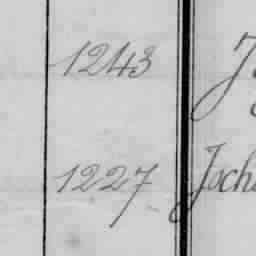 1243
1227 Joch